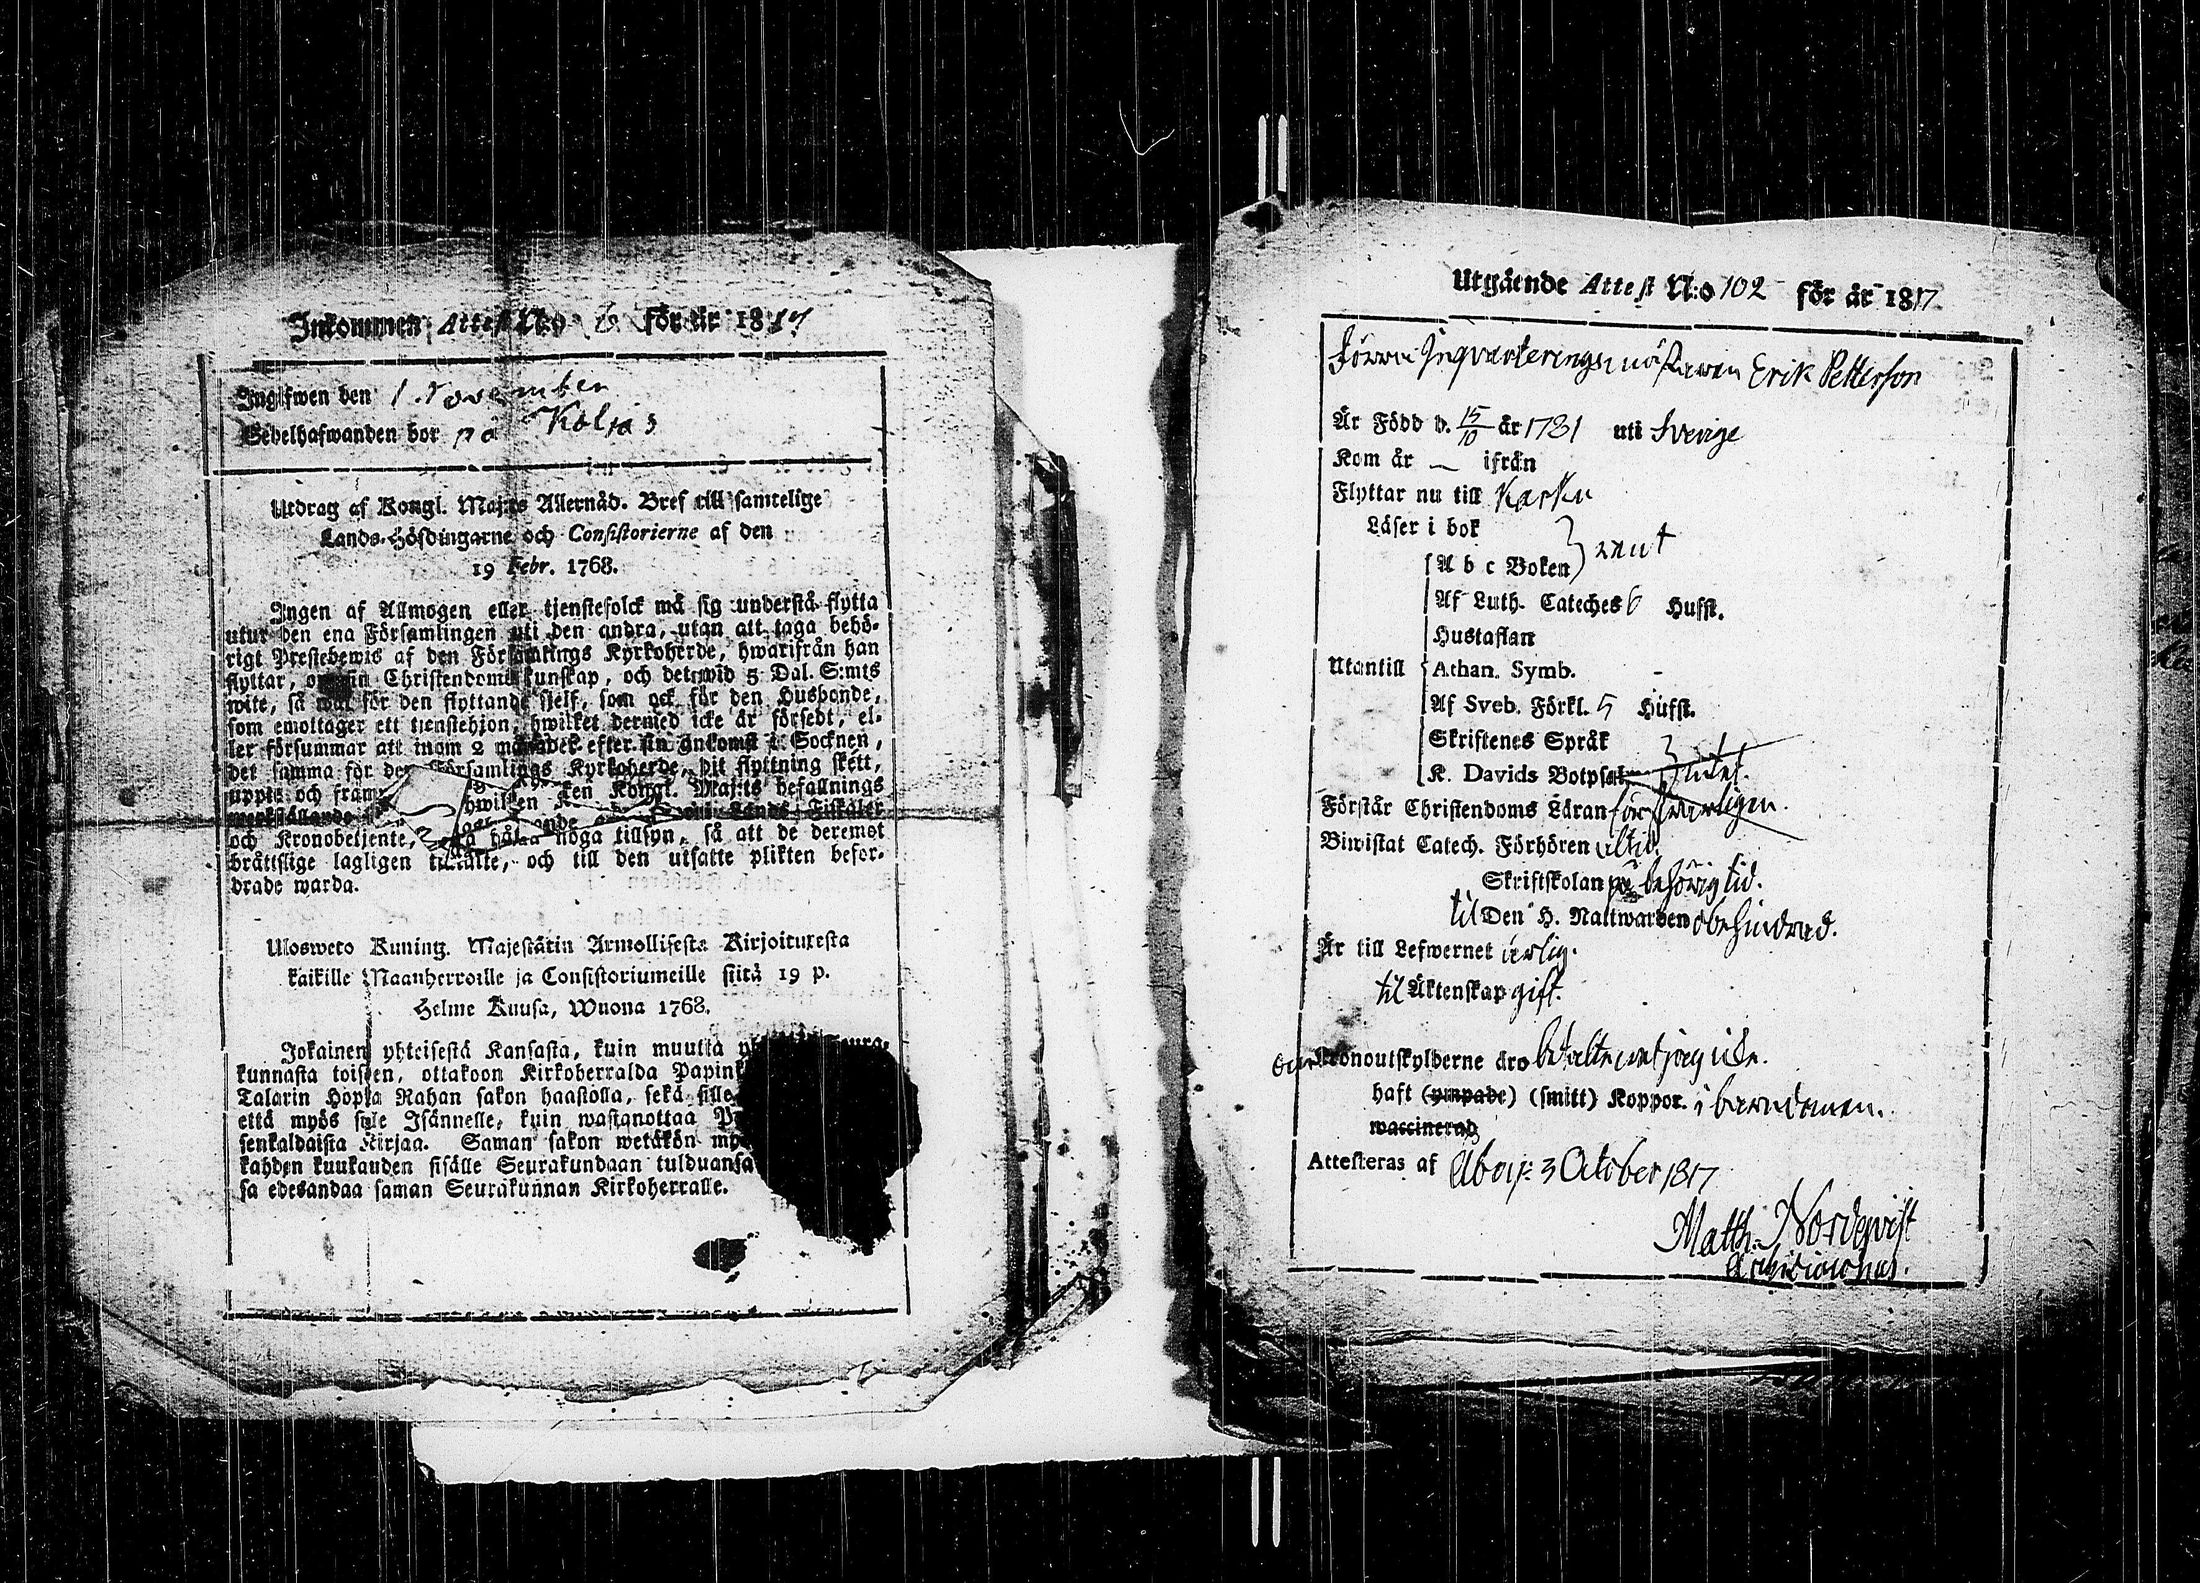 Inkommen Attest N:o 6 för år 1817
Ingifwen den 1 November
Sedelhafwanden bor på Koljas
Utdrag af Kongl. Maj:ts Allernåd. Bref till samtelige
Lands-Höfdingarne och Consistorierne af den
19 Febr. 1768.
Ingen af Allmogen eller tjenstefolck må sig understå flytta
utur den ena Församlingen uti den andra, utan att taga behö-
rigt Prestebewis af den Församlings Kyrkoherde, hwarifrån han
flyttar, om sin Christendoms kunskap, och det wid 5 Dal. S:mts
wite, så wäl för den flyttande sjelf, som ock för den Husbonde,
som emottager ett tjenstehjon, hwilket dermed icke är försedt, el-
ler försummar att inom 2 månader efter sin ankomst i Socknen,
det samma för den Församlings Kyrkoherde, dit flyttning skett,
uppte och fram hwilken Kongl. Maj:ts befallnings
werkställande Lands Fiskaler
och Kronobetjente, hålla noga tillsyn, så att de deremot
bråttslige lagligen tiltalte, och till den utsatte plikten befor-
drade warda.
Ulosweto Kuning. Majestätin Armollisesta Kirjoituxesta
kaikille Maanherroille ja Consistoriumeille siitä 19 p.
Helme Kuusa, Wuona 1768.
Jokainen yhteisestä Kansasta, kuin muutta Seura-
kunnasta toiseen, ottakoon Kirkoherralda Papin
Talarin Hopia Rahan sakon haastolla, sekä sille
että myös sille Isännelle, kuin wastanottaa
senkaldaista Kirjaa. Saman sakon wetäkön
kahden kuukauden sisälle Seurakundaan tulduansa
sa edesandaa saman Seurakunnan Kirkoherralle.
Utgående Attest N:o 102 för år 1817
Förra Inqvarteringsmästaren Erik Petterson
Är Född d. 15/10 år 1781 uti Sverige
Kom år — ifrån
Flyttar nu till Karku
Läser i bok
A b c Boken } rent
Af Luth. Cateches 6 Hufst.
Hustaflan
Utantill Athan. Symb. -
Af Sveb. Förkl. 5 Hufst.
Skriftenes Språk
K. Davids Botpsal
Förstår Christendoms Läran försvarligen.
Biwistat Catech. Förhören altid.
Skriftskolan på behörig tid.
til Den H. Nattwarden obehindrad.
Är till Lefwernet ärlig.
til Äktenskap gift.
Kronoutskylderne äro betalte
haft (ympade) (smitt) Koppor. i barndomen.
waccinerad
Attesteras af Åbo d. 3 October 1817
Matth. Nordqvist